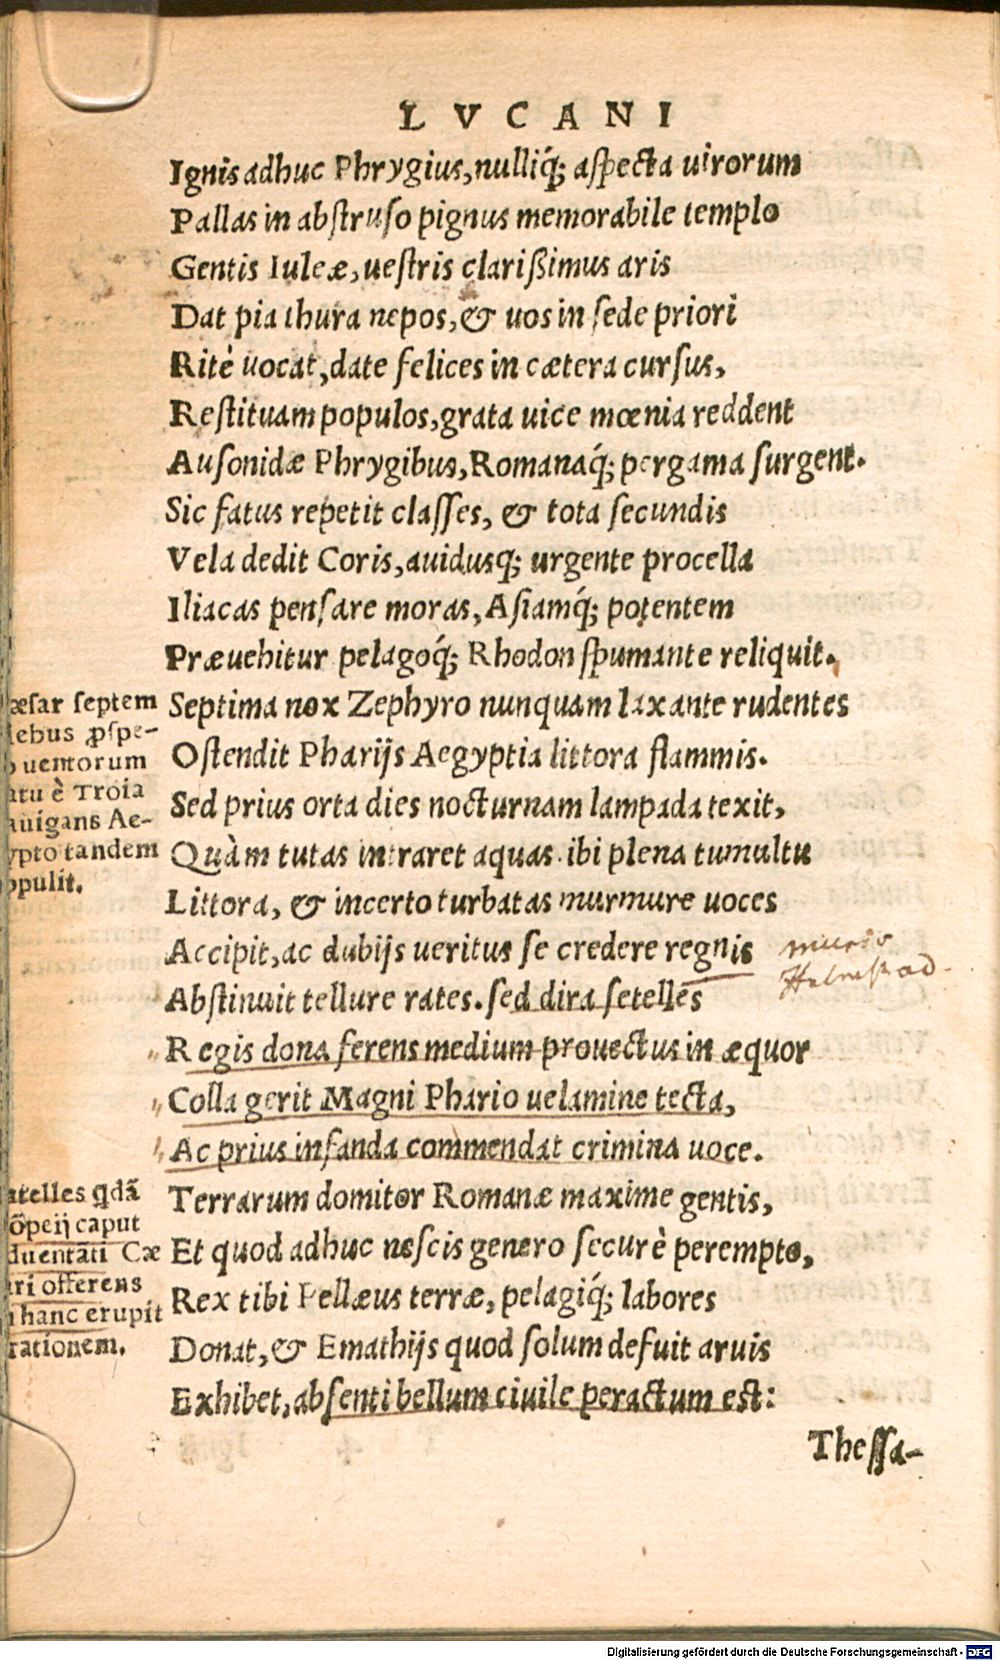 LVCANI
Ignis adhuc Phrygius, nulliq́; aspecta uirorum
Pallas in abstruso pignus memorabile templo
Gentis Iuleæ, uestris clarißimus aris
Dat pia thura nepos, & uos in sede priori
Ritè uocat, date felices in cætera cursus,
Restituam populos, grata uice mœnia reddent
Ausonidæ Phrygibus, Romanaq́; pergama surgent.
Sic fatus repetit classes, & tota secundis
Vela dedit Coris, auidusq; urgente procella
Iliacas pensare moras, Asiamq́; potentem
Præuehitur pelagoq́; Rhodon spumante reliquit.
Septima nox Zephyro nunquam laxante rudentes
Ostendit Pharijs Aegyptia littora flammis.
Sed prius orta dies nocturnam lampada texit,
Quàm tutas intraret aquas. ibi plena tumultu
Littora, & incerto turbatas murmure uoces
Accipit, ac dubijs ueritus se credere regnis
Abstinuit tellure rates. sed dira setelles
Regis dona ferens medium prouectus in æquor
Colla gerit Magni Phario uelamine tecta,
Ac prius infanda commendat crimina uoce.
Terrarum domitor Romanæ maxime gentis,
Et quod adhuc nescis genero securè perempto,
Rex tibi Pellæus terræ, pelagiq́; labores
Donat, & Emathijs quod solum defuit aruis
Exhibet, absenti bellum ciuile peractum est:
Thessa-
æsar septem
iebus ꝓspe-
o uentorum
atu è Troia
auigans Ae-
ypto tandem
ppulit.
atelles qdã
õpeij caput
duentãti Cæ
ri offerens
hanc erupit
rationem.
Digitalisierung gefördert durch die Deutsche Forschungsgemeinschaft - DFG